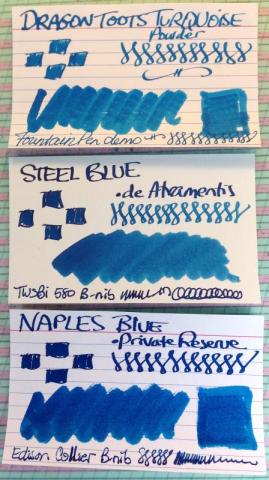 DRAGON TOOTS TURQUOISE
Powder
Fountain Pen demo
STEEL BLUE
• de Atramentis
TWSBI 580 B-nib
NAPLES BLUE
• Private Reserve
Edison Collier B-nib